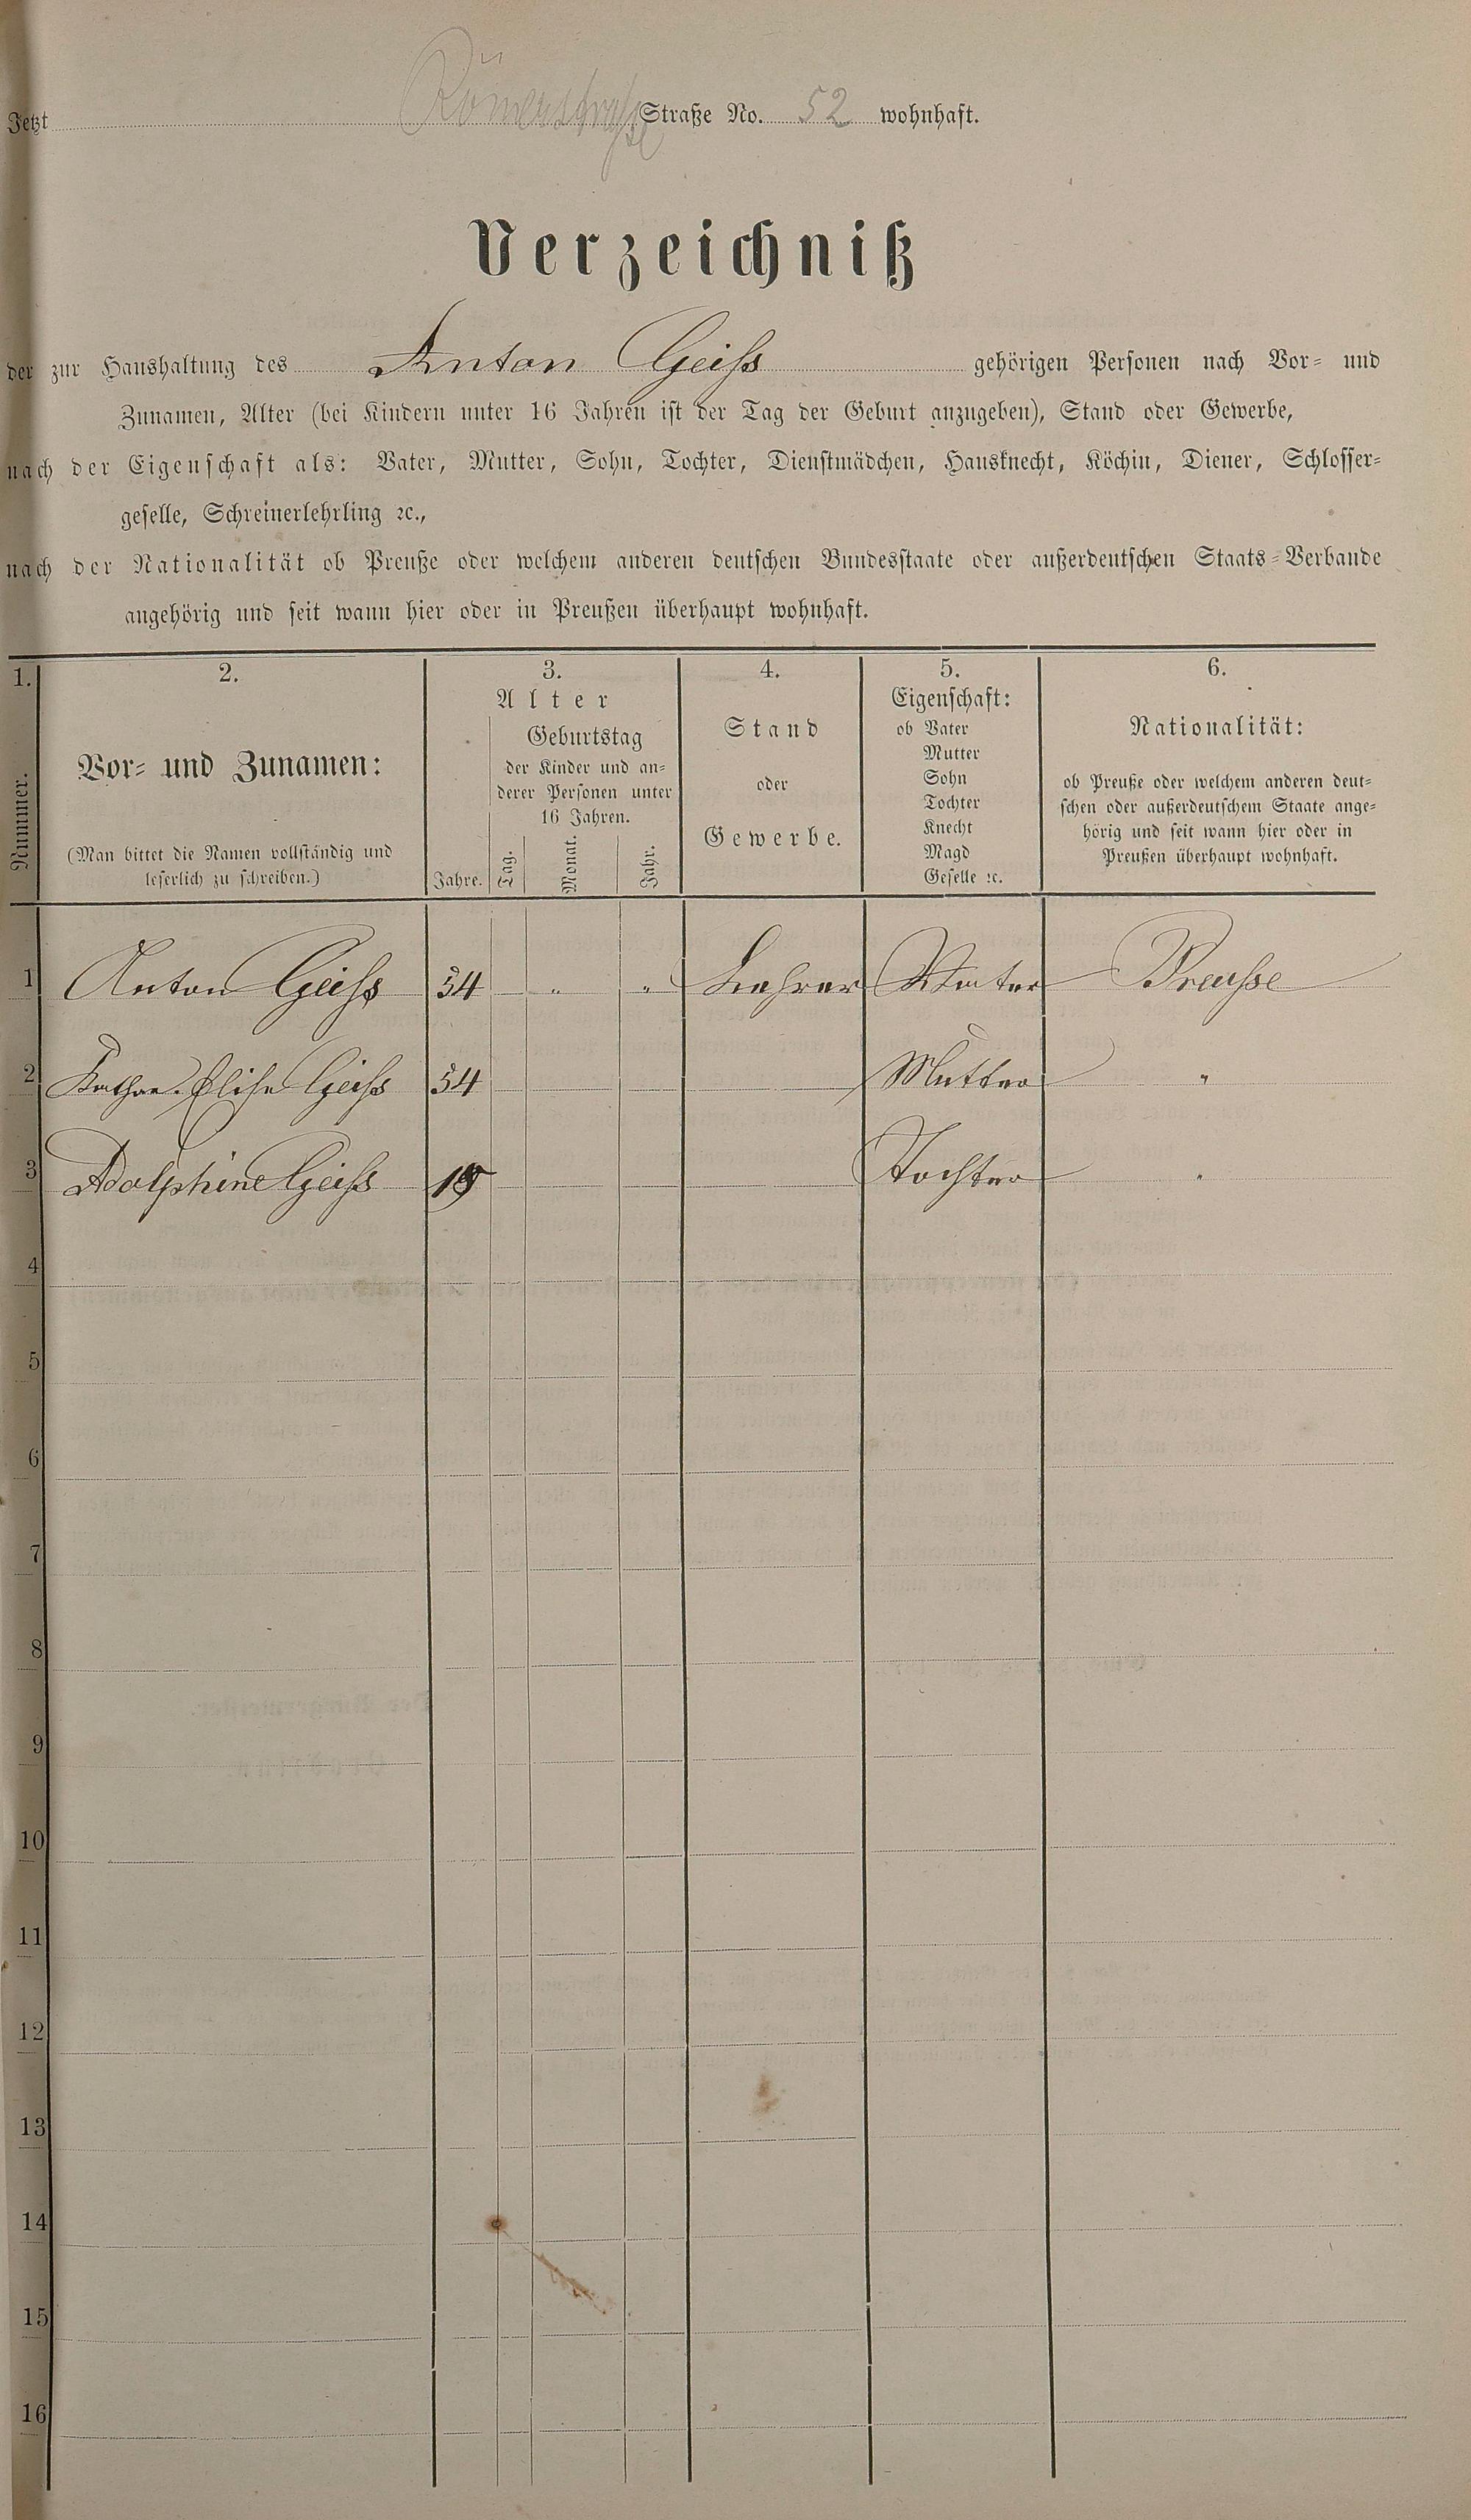 Jetzt Römerstraße Straße No. 52 wohnhaft.
Verzeichniß
der zur Haushaltung des Anton Geiß gehörigen Personen nach Vor- und
Zunamen, Alter (bei Kindern unter 16 Jahren ist der Tag der Geburt anzugeben), Stand oder Gewerbe,
nach der Eigenschaft als: Vater, Mutter, Sohn, Tochter, Dienstmädchen, Hausknecht, Köchin, Diener, Schlosser-
geselle, Schreinerlehrling ꝛc.,
nach der Nationalität ob Preuße oder welchem anderen deutschen Bundesstaate oder außerdeutschen Staats-Verbande
angehörig und seit wann hier oder in Preußen überhaupt wohnhaft.
1.
Nummer.
2.
Vor- und Zunamen:
(Man bittet die Namen vollständig und
leserlich zu schreiben.)
3.
Alter
Jahre.
Geburtstag
der Kinder und an-
derer Personen unter
16 Jahren.
Tag. Monat. Jahr.
4.
Stand
oder
Gewerbe.
5.
Eigenschaft:
ob Vater
Mutter
Sohn
Tochter
Knecht
Magd
Geselle ꝛc.
6.
Nationalität:
ob Preuße oder welchem anderen deut-
schen oder außerdeutschem Staate ange-
hörig und seit wann hier oder in
Preußen überhaupt wohnhaft.
1 Anton Geiß 54 " " Lehrer Vater Preuße
2 Kathar. Elise Geiß 54 Mutter "
3 Adolphine Geiß Tochter "
4
5
6
7
8
9
10
11
12
13
14
15
16